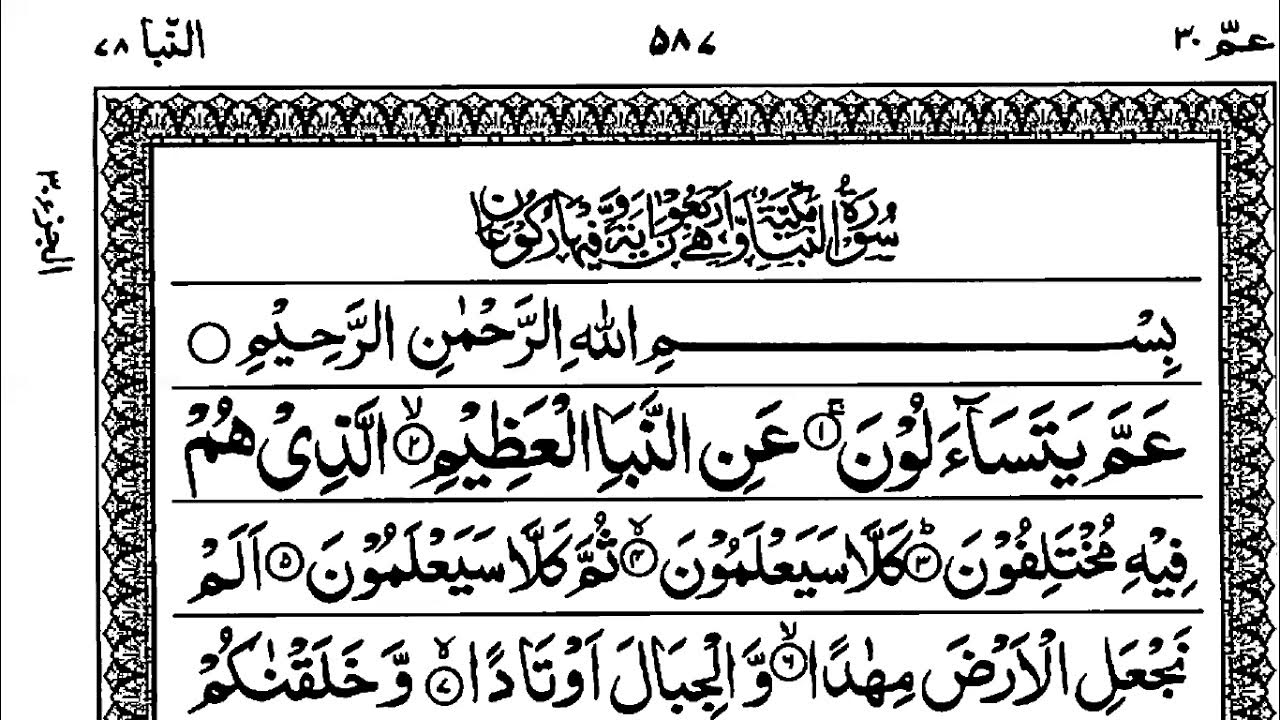 عمّ ٣٠
٥٨٧
النّبا ٧٨
الجزء ٣٠
سُوْرَةُ النَّبَاِ مَكِّيَّةٌ وَّهِيَ اَرْبَعُوْنَ اٰيَةً وَّفِيْهَا رُكُوْعَانِ
بِسْمِ اللهِ الرَّحْمٰنِ الرَّحِيْمِ
عَمَّ يَتَسَآءَلُوْنَ ۚ ١ عَنِ النَّبَاِ الْعَظِيْمِ ۙ ٢ الَّذِىْ هُمْ
فِيْهِ مُخْتَلِفُوْنَ ؕ ٣ كَلَّا سَيَعْلَمُوْنَ ۙ ٤ ثُمَّ كَلَّا سَيَعْلَمُوْنَ ٥ اَلَمْ
نَجْعَلِ الْاَرْضَ مِهٰدًا ۙ ٦ وَّالْجِبَالَ اَوْتَادًا ۙ ٧ وَّخَلَقْنٰكُمْ